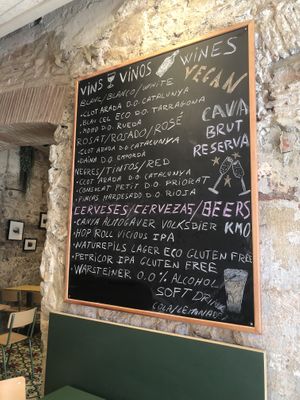 VINS VINOS WINES
VEGAN
BLANC/BLANCO/WHITE
•CLOT ARADA D.O. CATALUNYA
•BLAU CEL ECO D.O. TARRAGONA
D.O. RUEDA
ROSAT/ROSADO/ROSÉ
•CLOT ARADA D.O CATALUNYA
D.O. EMPORDA
NEGRES/TINTOS/RED
•CLOT ARADA D.O. CATALUNYA
PETIT D.O PRIORAT
•FINCAS D.O RIOJA
CAVA
BRUT
RESERVA
CERVESES/CERVEZAS/BEERS
•CANYA ALMOGÀVER VOLKSDIER KM0
•HOP ROLL VICIOUS IPA
•NATUREPILS LAGER ECO GLUTEN FREE
•PETRICOR IPA GLUTEN FREE
•WARSTEINER 0.0% ALCOHOL
SOFT DRINK
COLA/LEMONADE